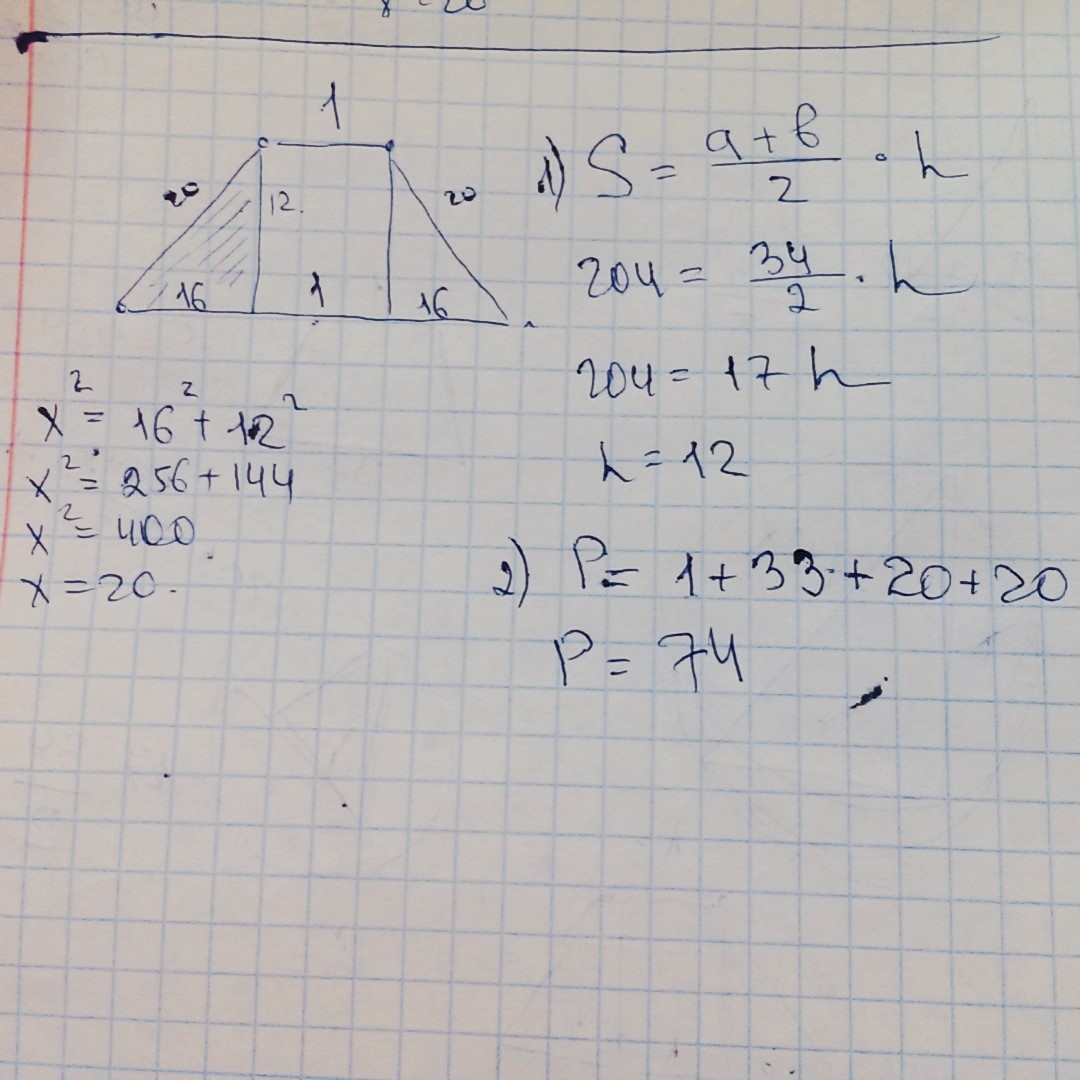 x = 20
1
20
12.
20
16
1
16
x² = 16² + 12²
x² = 256 + 144
x² = 400
x = 20.
1) S = (a + b)/2 · h
204 = 34/2 · h
204 = 17 h
h = 12
2) P = 1 + 33 + 20 + 20
P = 74